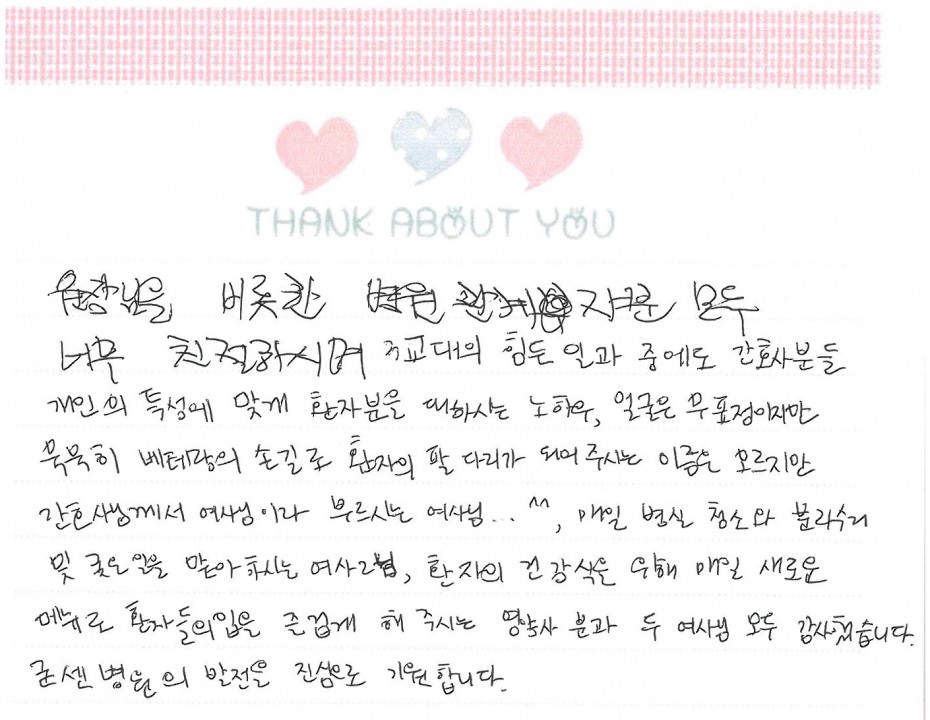 THANK ABOUT YOU
원장님을 비롯한 병원 관계자분 모두
너무 친절하시며 3교대의 힘든 일과 중에도 간호사분들
개인의 특성에 맞게 환자분을 대하시는 노하우, 얼굴은 무표정이지만
묵묵히 베테랑의 손길로 환자의 팔 다리가 되어주시는 이름은 모르지만
간호사님께서 여사님이라 부르시는 여사님... ^^, 매일 병실 청소와 분리수거
및 궂은일을 맡아하시는 여사님, 환자의 건강식은 위해 매일 새로운
메뉴로 환자들의입을 즐겁게 해 주시는 영양사 분과 두 여사님 모두 감사했습니다.
굳센병원의 발전을 진심으로 기원합니다.